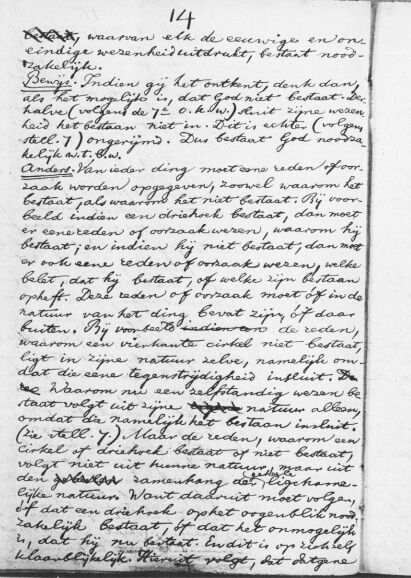 14
bestaat, waarvan elk de eeuwige en on-
eindige wezenheid uitdrukt, bestaat nood-
zakelijk.
Bewijs. Indien gij het ontkent, denk dan,
als het mogelijk is, dat God niet bestaat. Der-
halve (volgens de 7e o. k. w.) sluit zijne wezen
heid het bestaan niet in. Dit is echter (volgens
stell. 7) ongerijmd. Dus bestaat God noodza
kelijk w.t.b.w.
Anders. Van ieder ding moet eene reden of oor-
zaak worden opgegeven, zoowel waarom het
bestaat, als waarom het niet bestaat. Bij voor-
beeld indien een driehoek bestaat, dan moet
er eene reden of oorzaak wezen, waarom hij
bestaat; en indien hij niet bestaat, dan moet
er ook eene reden of oorzaak wezen, welke
belet, dat hij bestaat, of welke zijn bestaan
opheft. Deze reden of oorzaak moet óf in de
natuur van het ding bevat zijn, óf daar
buiten. Bij voorbeeld de reden,
waarom een vierkante cirkel niet bestaat,
ligt in zijne natuur zelve, namelijk om-
dat die eene tegenstrijdigheid insluit.
Waarom nu een zelfstandig wezen be
staat volgt uit zijne natuur alleen,
omdat die namelijk het bestaan insluit.
(zie stell. 7.) Maar de reden, waarom een
cirkel of driehoek bestaat of niet bestaat,
volgt niet uit hunne natuur, maar uit
den samenhang der geheele ligchame-
lijke natuur. Want daaruit moet volgen,
óf dat een driehoek op het oogenblik nood
zakelijk bestaat, óf dat het onmogelijk
is, dat hij nu bestaat. En dit is op zichzelf
klaarblijkelijk. Hieruit volgt, dat datgene